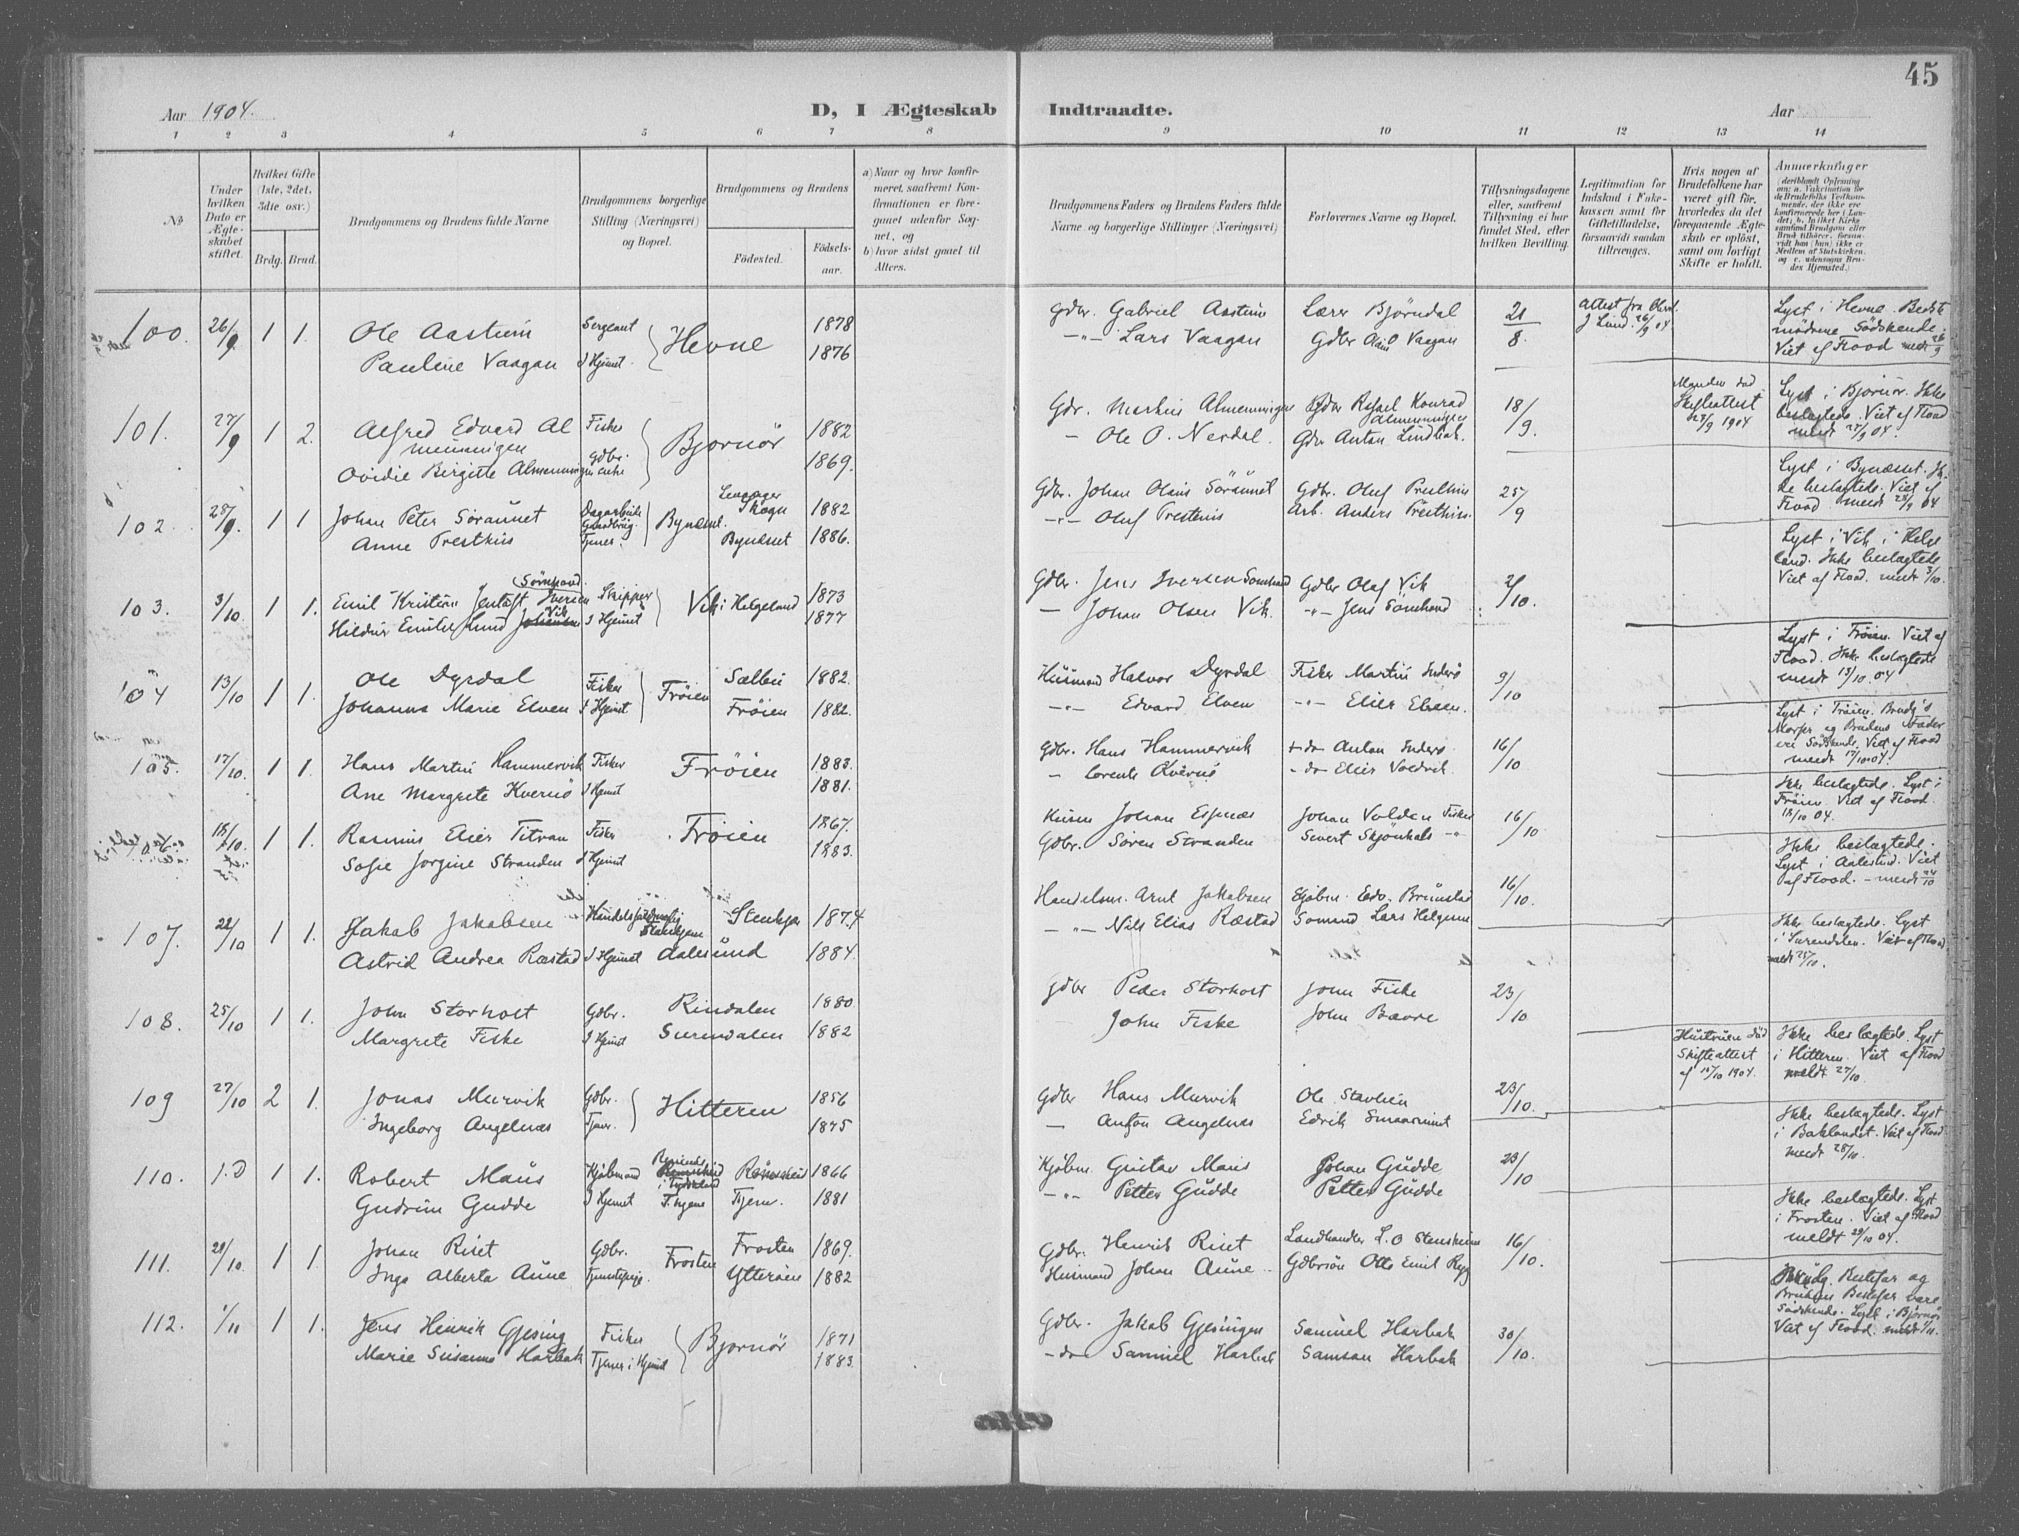 45
Aar 1904.
D, I Ægteskab Indtraadte.
Aar
1 2 3 4 5 6 7 8 9 10 11 12 13 14
No
Under hvilken Dato er Ægteskabet stiftet.
Hvilket Gifte (1ste, 2det, 3die osv.)
Brdg. Brud.
Brudgommens og Brudens fulde Navne
Brudgommens borgerlige Stilling (Næringsvei) og Bopæl.
Brudgommens og Brudens
Fødested.
Fødselsaar.
a) Naar og hvor konfirmeret, saafremt Konfirmationen er foregaaet udenfor Sognet, og
b) hvor sidst gaaet til Alters.
Brudgommens Faders og Brudens Faders fulde Navne og borgerlige Stillinger (Næringsvei)
Forlovernes Navne og Bopæl.
Tillysningsdagene eller, saafremt Tillysning ei har fundet Sted, efter hvilken Bevilling.
Legitimation for Indskud i Enkekassen samt for Giftetilladelse, forsaavidt saadan tiltrænges.
Hvis nogen af Brudefolkene har været gift før, hvorledes da det foregaaende Ægteskab er opløst, samt om lovligt Skifte er holdt.
Anmærkninger
(deriblandt Oplysning om: a. Vakcination for de Brudefolks Vedkommende, der ikke ere konfirmerede her i Landet; b. hvilket Kirkesamfund Brudgom eller Brud tilhører, forsaavidt han (hun) ikke er Medlem af Statskirken, og c. udensogns Brudes Hjemsted.)
100. 26/9 1 1. Ole Aastum Sergeant Hevne 1878 Gdbr. Gabriel Aastum Lærer Bjørndal 21/8. Attest fra J Lund 26/9 04 Lyst i Hevne. Bedstemødrene Södskende. Viet af Flood meldt 26/9
Pauline Vaagan I Hjemmet 1876 -"- Lars Vaagan Gdbr Vaagan
101. 27/9 1 2. Alfred Edvard Almenningen Fisker Bjørnør 1882 Gdr. Markus Almenningen Konrad Almenningen 18/9. Manden død Skifteattest 23/9 1904 Lyst i Bjørnør. Ikke beslægtede. Viet af Flood meldt 27/9 04.
Ovidie Birgitte Almenningen Gdbr. enke 1869. - Ole O. Nerdal. Gdr Anton Lindbak.
102. 28/9. 1 1 Johan Peter Søraunet Bynæsset. 1882 Gdbr. Johan Olaus Søraunet Gdbr. Oluf Presthus 25/9 Lyst i Bynæsset. Ikke beslægtede. Viet af Flood meldt 28/9 04
Anne Presthus Tjener. Bynæsset 1886. -"- Oluf Presthus Arb. Anders Presthus.
103. 3/10 1 1. Emil Kristian Jentoft Iversen Sømhovd Skipper Vik i Helgeland 1873 Gdbr. Jens Iversen Sømhovd Gdbr Olaf Vik 2/10. Lyst i Vik i Helgeland. Ikke beslægtede Viet af Flood. meldt 3/10.
Hildur Emilie Lund Vik I Hjemmet 1877 - Johan Olsen Vik -"- Jens Sømhovd
104 13/10 1 1. Ole Dyrdal Fisker Frøien Sælbu 1882. Husmand Halvor Dyrdal Fisker Martin Inderø 9/10 Lyst i Frøien. Viet af Flood. Ikke beslægtede meldt 13/10 04
Johanna Marie Elven I Hjemmet Frøien 1882. -"- Edvard Elven -"- Elier Elven.
105. 17/10. 1 1. Hans Martin Hammervik Fisker Frøien 1883. Gdbr. Hans Hammervik -do Anton Inderø 16/10 Lyst i Frøien. Brudg's Morfar og Brudens Fader ere Södskende. Viet af Flood meldt 17/10 04.
Ane Margrete Kvernø I Hjemmet 1881. - Lorents Kvernø -do Elier Valdvik
18/10. 1 1. Rasmus Elier Titran Fisker Frøien 1867. Johan Espnæs Johan Volden Fisker 16/10 Ikke beslægtede. Lyst i Frøien Viet af Flood. 18/10 04.
Sofie Jorgine Stranden I Hjemmet 1883. Gdbr. Søren Stranden Sivert Skjønhals -"-
107. 22/10 1 1. Jakob Jakobsen Stenkjær Stenkjær 1874 Handelsm. Arnt Jakobsen Kjøbm. Edv. Brunstad 16/10. Ikke beslægtede. Lyst i Aalesund. Viet af Flood. - meldt 24/10
Astrid Andrea Ræstad I Hjemmet Aalesund 1884. -"- Nils Elias Ræstad Sømand Lars Helgesen
108. 25/10 1 1. John Storholt Gdbr. Rindalen 1880 Gdbr Peder Storholt John Fiske 23/10 Ikke beslægtede. Lyst i Surendalen. Viet af Flood meldt 25/10.
Margrete Fiske I Hjemmet Surendalen 1882 John Fiske John Bævre
109 27/10 2 1. Jonas Murvik Gdbr. Hitteren 1856 Gdbr Hans Murvik Ole 23/10. Hustruen død Skifteattest af 18/10 1904. Ikke beslægtede. Lyst i Hitteren. Viet af Flood meldt 27/10.
Ingeborg Angelnæs Tjener. 1875 - Anton Angelnæs Edvik
110. 1 1. Robert Maus Kjøbmand i Tydskland Remscheid 1866 Kjøbm. Gustav Maus Johan Gudde 23/10 Ikke beslægtede. Lyst i Baklandet. Viet af Flood meldt 28/10.
Gudrun Gudde I Hjemmet T.hjem Tjem. 1881 -"- Petter Gudde Petter Gudde
111. 29/10. 1 1. Johan Riset Gdbr. Frosten Frosten 1869. Gdbr. Henrik Riset Landhandler L. O Stensheim 16/10. Ikke beslægtede. Lyst i Frosten. Viet af Flood meldt 29/10 04.
Inga Alberta Aune Tjenestepige. Ytterøen 1882 Husmand Johan Aune Gdbrsøn Otto Emil Ryg
112. 1/11 1 1. Jens Henrik Gjesing Fisker Bjørnør 1871 Gdbr. Jakob Gjesingen Samuel Harbak 30/10. Brudg. Bestefar og Brudens Bestefar vare Södskende. Lyst i Bjørnør Viet af Flood. meldt 1/11.
Marie Susanna Harbak Tjener i Hjemmet 1883. -do Samuel Harbak Samson Harbak